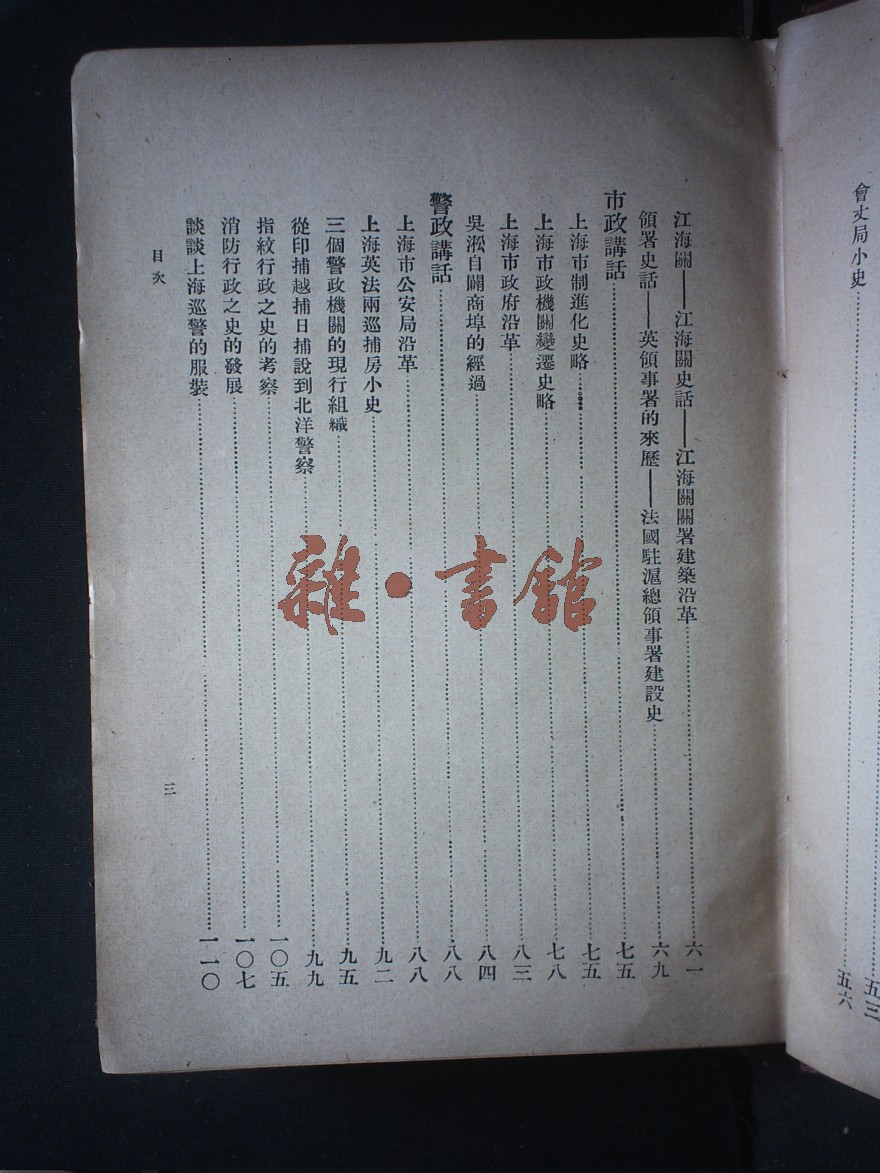 會丈局小史
五三
五六
江海關——江海關史話——江海關關署建築沿革 六一
領署史話——英領事署的來歷——法國駐滬總領事署建設史 六九
市政講話 七五
上海市制進化史略 七五
上海市政機關變遷史略 七八
上海市政府沿革 八三
吳淞自闢商埠的經過 八四
警政講話 八八
上海市公安局沿革 八八
上海英法兩巡捕房小史 九二
三個警政機關的現行組織 九五
從印捕越捕日捕說到北洋警察 九九
指紋行政之史的考察 一〇五
消防行政之史的發展 一〇七
談談上海巡警的服裝 一一〇
目次
三
雜·書館